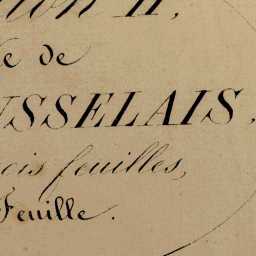 tion H,
te de
USSELAIS,
ois feuilles,
Feuille.